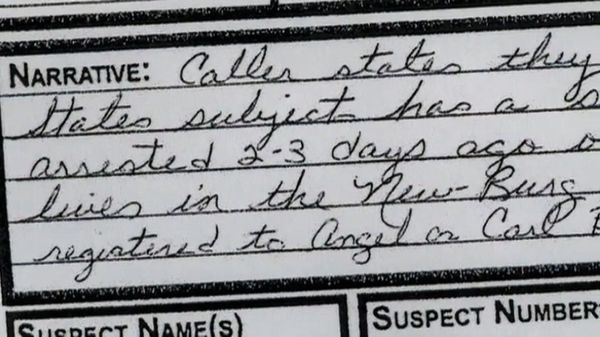 NARRATIVE: Caller states they
States subject has a s
arrested 2-3 days ago o
lives in the New-Burg
registered to Angel or Carl B
SUSPECT NAME(S)
SUSPECT NUMBER